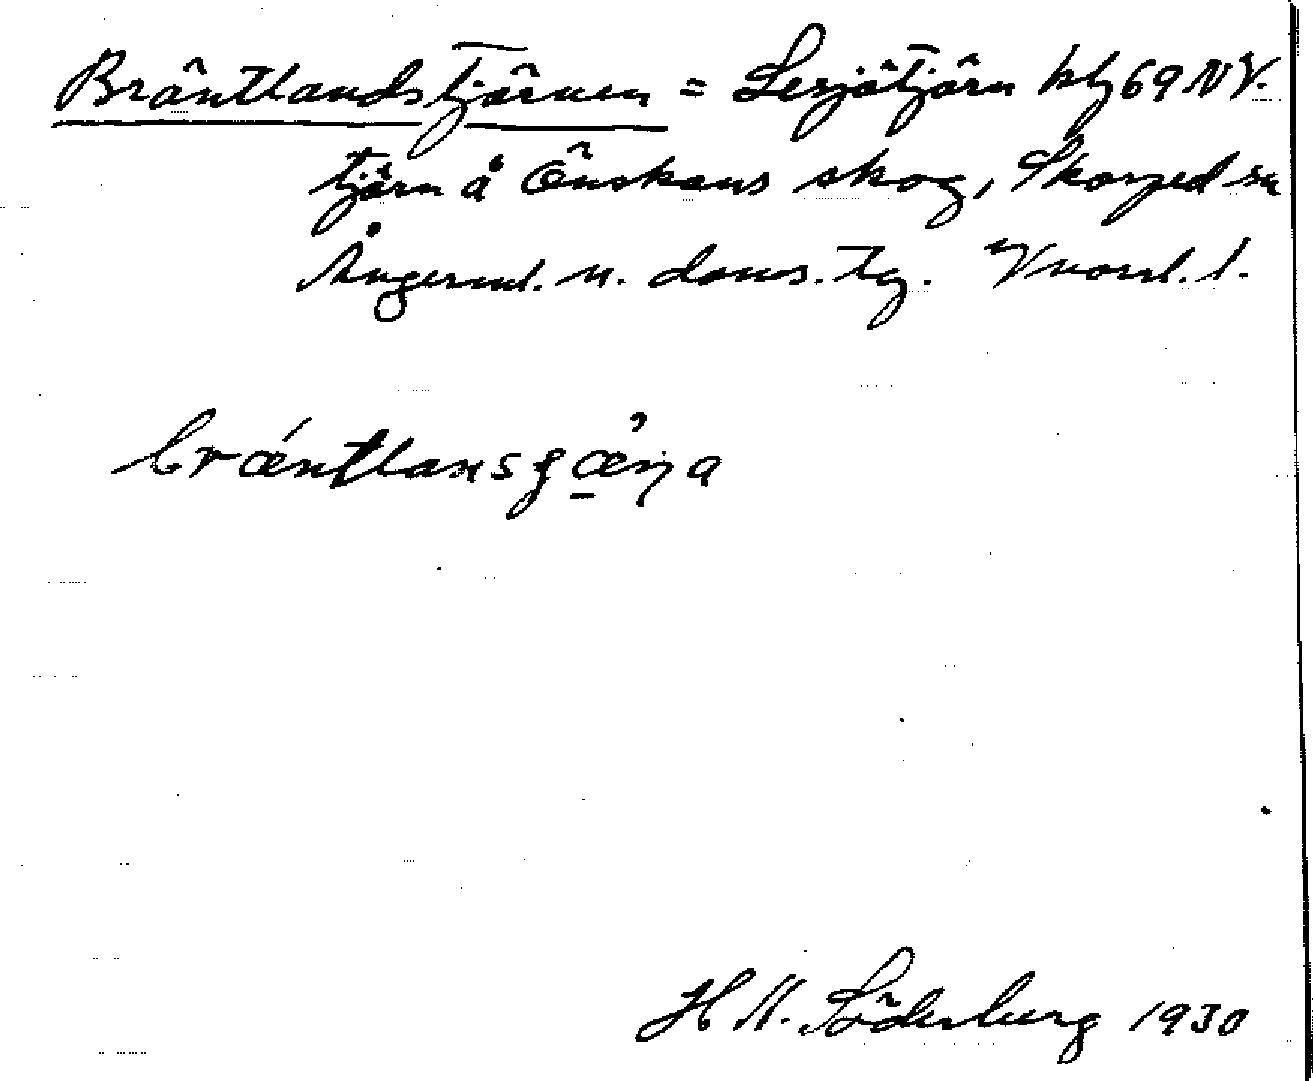 Bräntlandstjärnen = Lesjötjärn blz 69 NV.
tjärn å Önskans skog, Skorped sn
Ångerml. n. doms. tg. Vnorrl. l.
brǽntlansɟæ̱ṇa
H M. Söderberg 1930